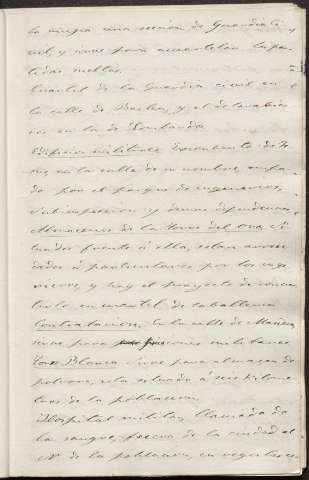 la misma una sección de Guardia ci
vil, y sirve para acuartelar las par
tidas sueltas.
Cuartel de la Guardia civil en
la calle de Bailen, y el de
en la de
Edificios militares Exconbento de
en la calle de su nombre, ocupa
do por el parque de ingenieros,
Subinspeccion y demas dependencias
Almacenes de la Torre del Oro, si
tuados frente á ella, estan arren
dados á particulares por los inge
nieros, y hay el proyecto de conver
tirlo en cuartel de caballeria
Contratacion, en la calle de
sirve para
Torre Blanca sirve para almacen de
polvora, esta situado á seis kilome
tros de la poblacion.
Hospital militar, llamado de
la sangre, fuera de la ciudad al
N. de la poblacion, en regular es